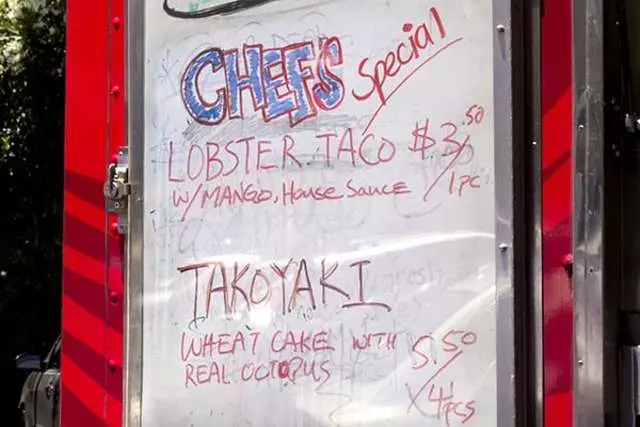 CHEFS Special
LOBSTER TACO $3.50
W/MANGO, House Sauce /1pc
TAKOYAKI
WHEAT CAKE WITH 5.50
REAL OCTOPUS /4pcs